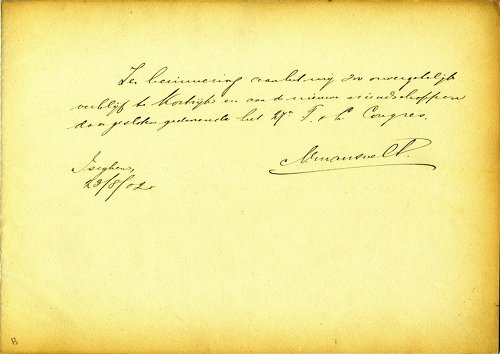 Ter herinnering aan het mij zoo onvergetelijk
verblijf te Kortrijk en aan de nieuwe vriendschappen
aangesloten gedurende het 27e T. & L. Congres.
Iseghem,
23/8/02.
B